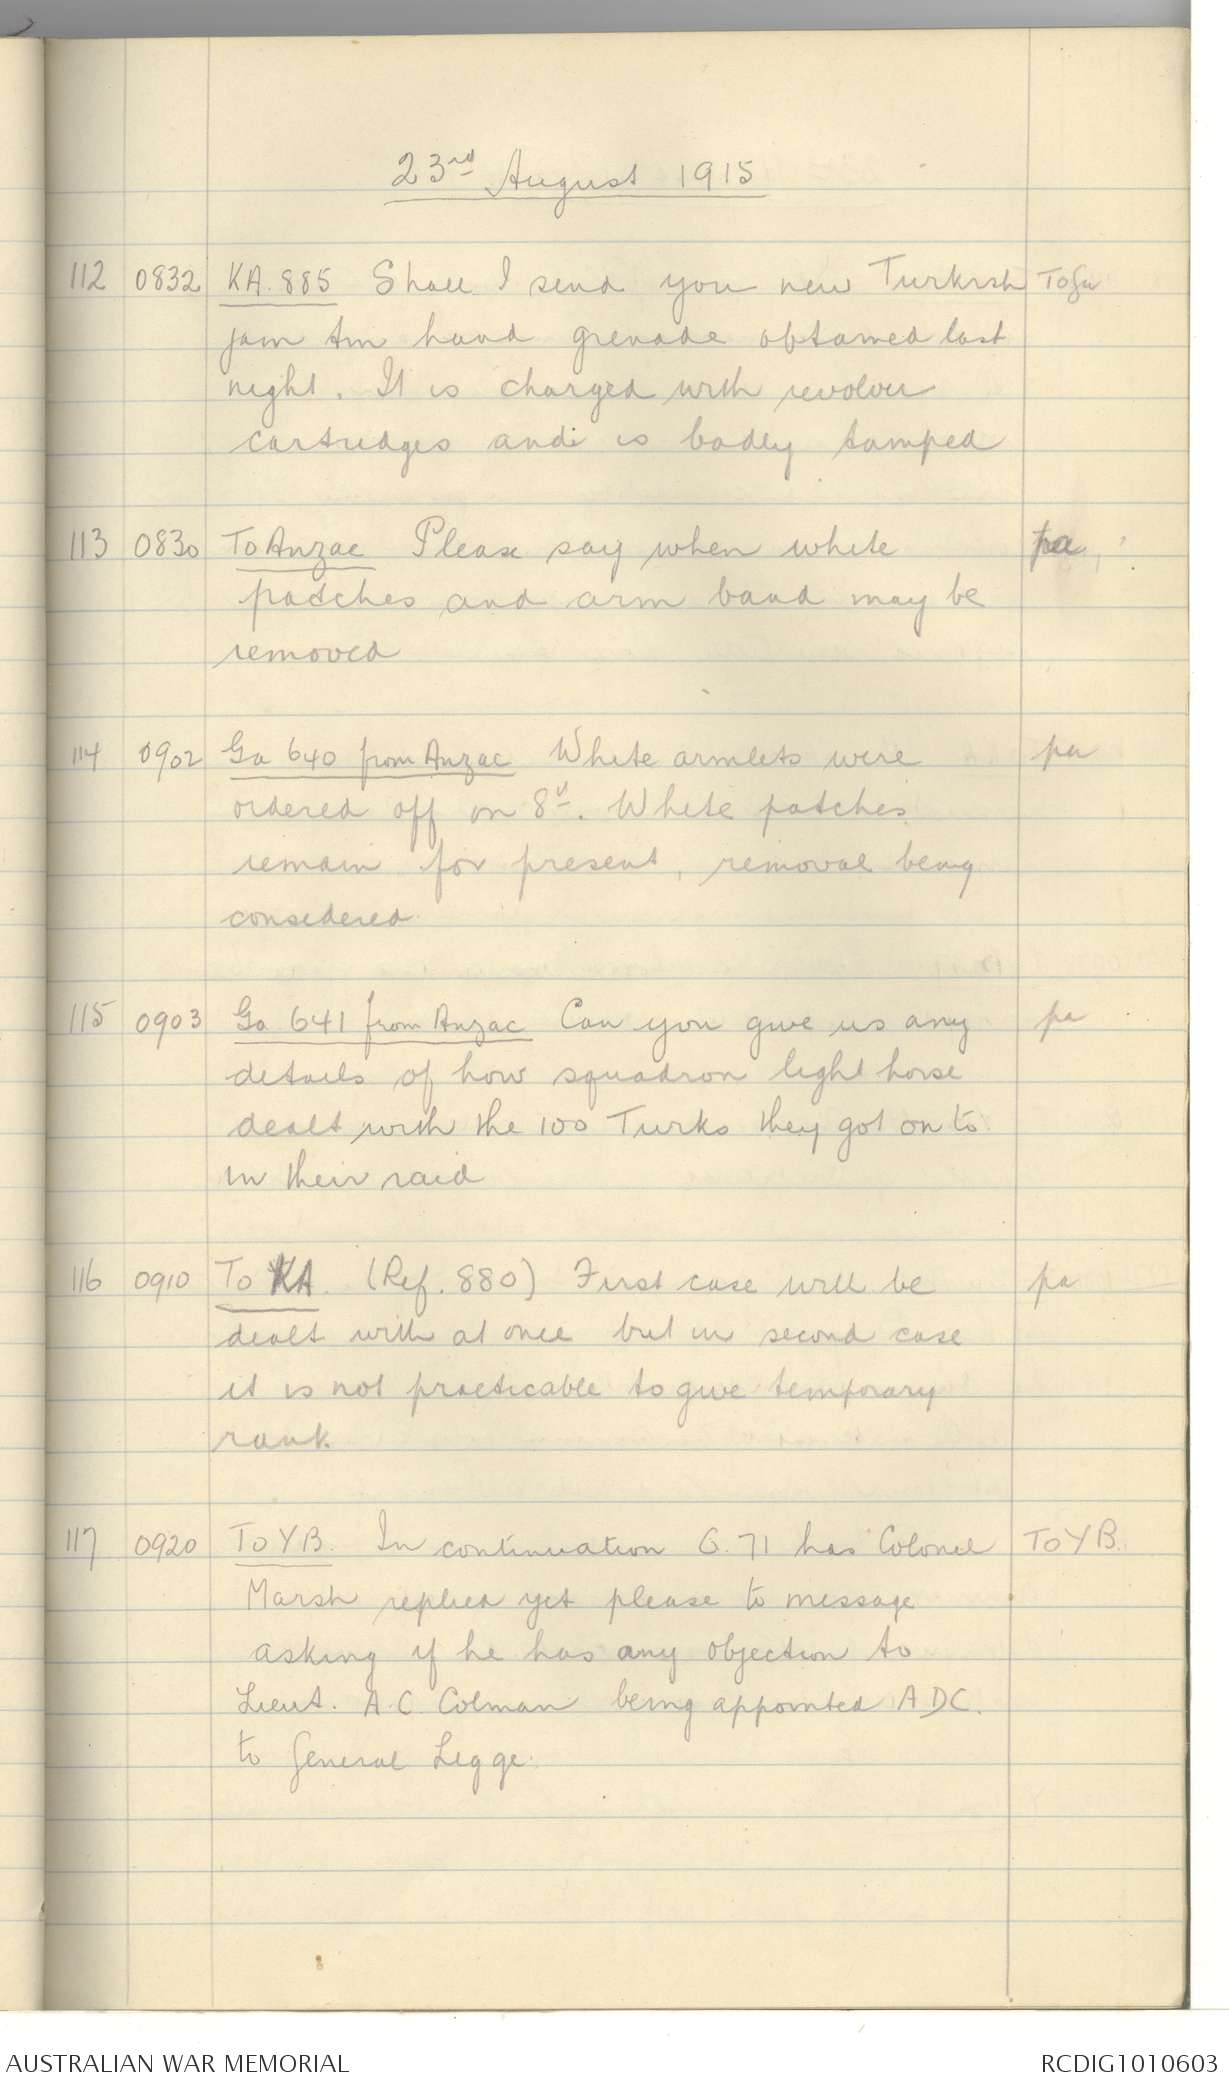 23rd August 1915
112 0832 KA. 885 Shall I send you new Turkish
jam tin hand grenade obtained last
night. It is charged with revolver
cartridges and is badly tamped
113 0830 To Anzac Please say when white pa
patches and arm band may be
removed
114 0902 Ga 640 from Anzac White armlets were pa
ordered off on 8th. White patches
remain for present, removal being
considered
115 0903 Ga 641 from Anzac Can you give us any pa
details of how squadron light horse
dealt with the 100 Turks they got on to
in their raid
116 0910 To KA. (Ref. 880) First case will be pa
dealt with at once but in second case
it is not practicable to give temporary
rank.
117 0920 To YB. In continuation G. 71 has Colonel To YB.
Marsh replied yet please to message
asking if he has any objection to
Lieut. A.C. Colman being appointed ADC.
to General Legge.
AUSTRALIAN WAR MEMORIAL RCDIG1010603